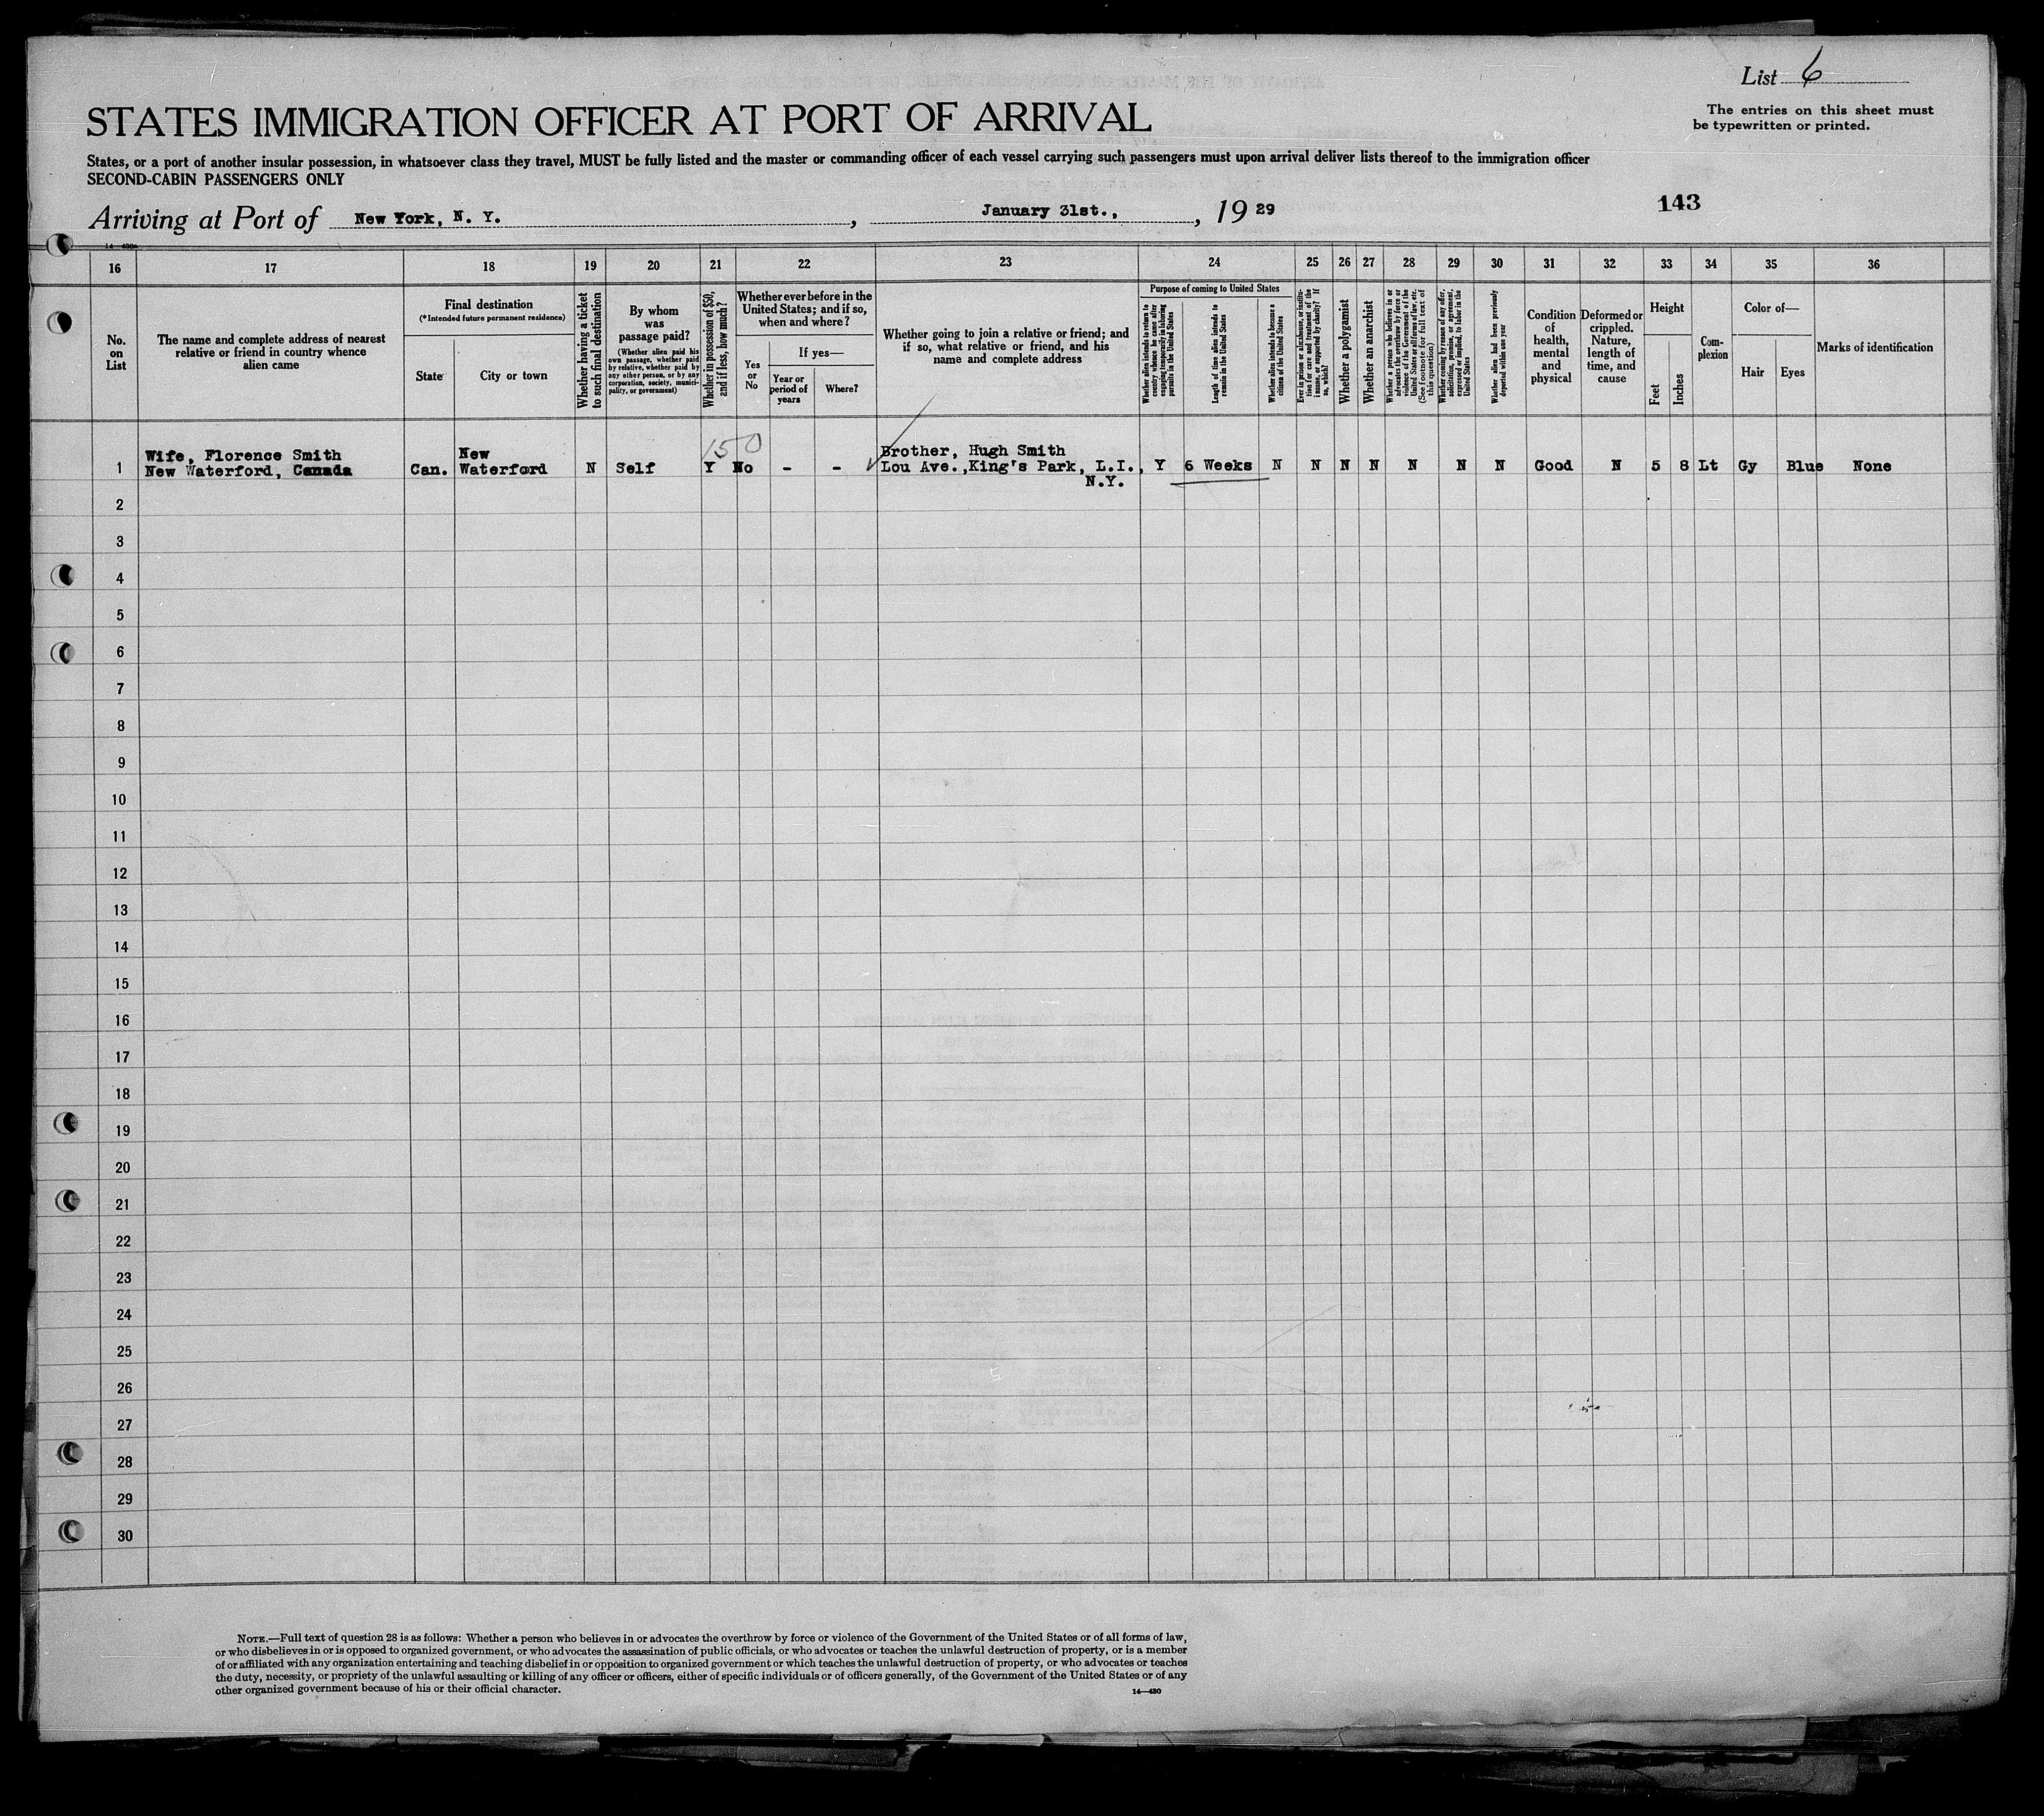 List 6
The entries on this sheet must
be typewritten or printed.
STATES IMMIGRATION OFFICER AT PORT OF ARRIVAL
States, or a port of another insular possession, in whatsoever class they travel, MUST be fully listed and the master or commanding officer of each vessel carrying such passengers must upon arrival deliver lists thereof to the immigration officer
SECOND-CABIN PASSENGERS ONLY
143
Arriving at Port of New York, N. Y. , January 31st., , 19 29
14-430a
16 17 18 19 20 21 22 23 24 25 26 27 28 29 30 31 32 33 34 35 36
No.
on
List
The name and complete address of nearest
relative or friend in country whence
alien came
Final destination
(*Intended future permanent residence)
State
City or town
Whether having a ticket
to such final destination
By whom
was
passage paid?
(Whether alien paid his
own passage, whether paid
by relative, whether paid by
any other person, or by any
corporation, society, munici-
pality, or government)
Whether in possession of $50,
and if less, how much?
Whether ever before in the
United States; and if so,
when and where?
Yes
or
No
If yes—
Year or
period of
years
Where?
Whether going to join a relative or friend; and
if so, what relative or friend, and his
name and complete address
Purpose of coming to United States
Whether alien intends to return to
country whence he came after
engaging temporarily in laboring
pursuits in the United States
Length of time alien intends to
remain in the United States
Whether alien intends to become a
citizen of the United States
Ever in prison or almshouse, or institu-
tion for care and treatment of the
insane, or supported by charity? If
so, which?
Whether a polygamist
Whether an anarchist
Whether a person who believes in or
advocates the overthrow by force or
violence of the Government of the
United States or all forms of law, etc.
(See footnote for full text of
this question)
Whether coming by reason of any offer,
solicitation, promise, or agreement,
expressed or implied, to labor in the
United States
Whether alien had been previously
deported within one year
Condition
of
health,
mental
and
physical
Deformed or
crippled.
Nature,
length of
time, and
cause
Height
Feet
Inches
Com-
plexion
Color of—
Hair
Eyes
Marks of identification
150
Wife, Florence Smith New Brother, Hugh Smith
1 New Waterford, Canada Can. Waterford N Self Y No - - Lou Ave.,King's Park, L.I., Y 6 Weeks N N N N N N N Good N 5 8 Lt Gy Blue None
N.Y.
2
3
4
5
6
7
8
9
10
11
12
13
14
15
16
17
18
19
20
21
22
23
24
25
26
27
28
29
30
NOTE.—Full text of question 28 is as follows: Whether a person who believes in or advocates the overthrow by force or violence of the Government of the United States or of all forms of law,
or who disbelieves in or is opposed to organized government, or who advocates the assassination of public officials, or who advocates or teaches the unlawful destruction of property, or is a member
of or affiliated with any organization entertaining and teaching disbelief in or opposition to organized government or which teaches the unlawful destruction of property, or who advocates or teaches
the duty, necessity, or propriety of the unlawful assaulting or killing of any officer or officers, either of specific individuals or of officers generally, of the Government of the United States or of any
other organized government because of his or their official character.
14—430